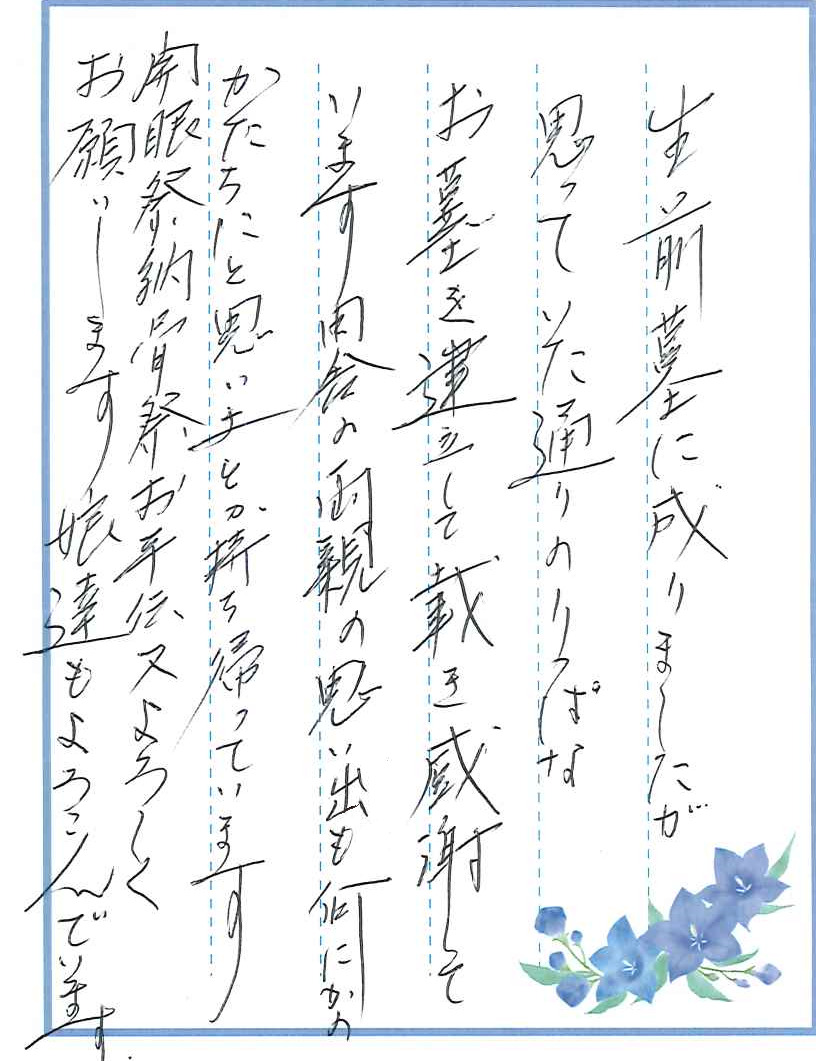 生前墓に成りましたが
思っていた通りのりっぱな
お墓を建立して載き感謝して
います田舎の両親の思い出も何にかの
かたちにと思い少とか持ち帰っています
開眼祭、納骨祭、お手伝又よろしく
お願いします娘達もよろこんでいます。